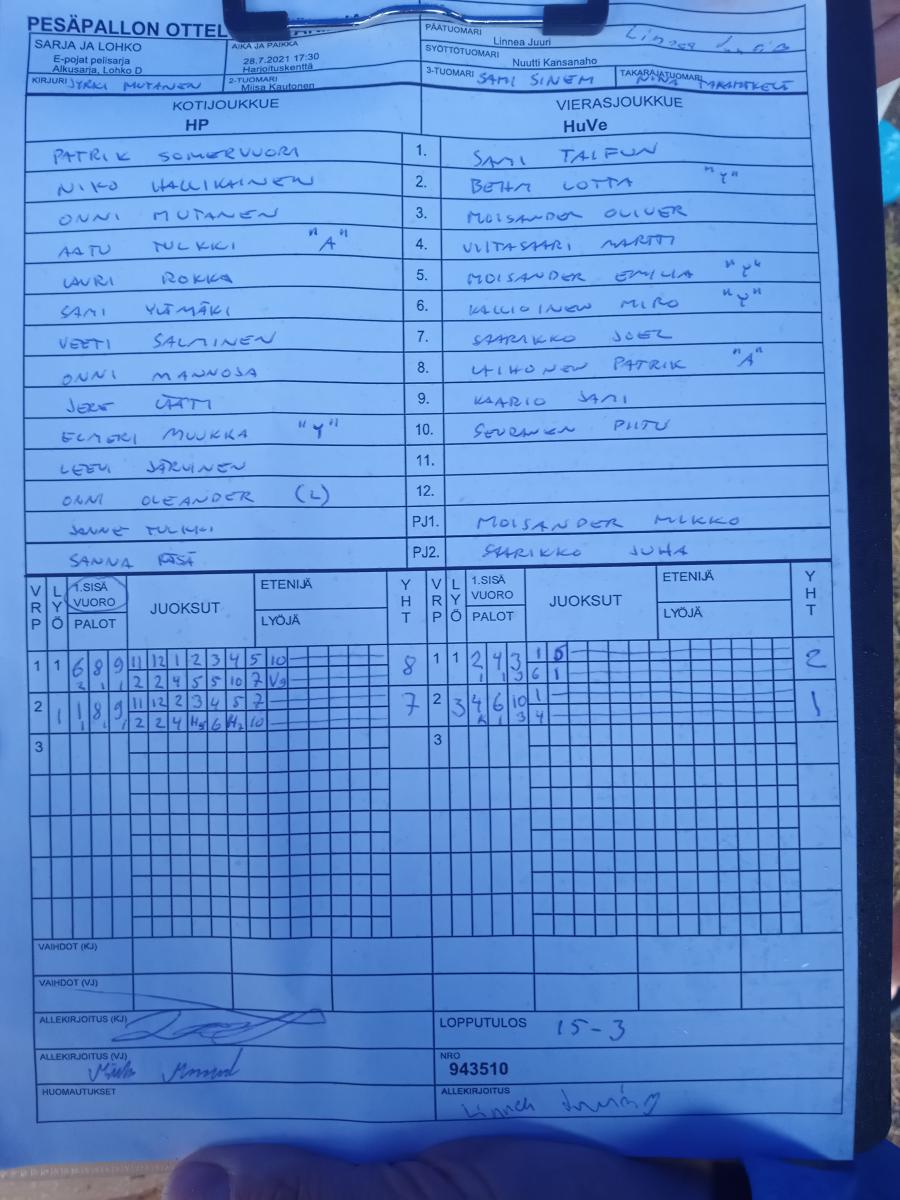 PESÄPALLON OTTEL
SARJA JA LOHKO
E-pojat pelisarja
Alkusarja, Lohko D
AIKA JA PAIKKA
28.7.2021 17:30
Harjoituskenttä
PÄÄTUOMARI
Linnea Juuri
SYÖTTÖTUOMARI
Nuutti Kansanaho
KIRJURI JYRKI MUTANEN
2-TUOMARI
Miisa Kautonen
3-TUOMARI SAMI SINEM
TAKARAJATUOMARI NINA
KOTIJOUKKUE
HP
VIERASJOUKKUE
HuVe
PATRIK SOMERVUORI 1. SAMI TAIFUN
NIKO HALLIKAINEN 2. BEHM LOTTA "Y"
ONNI MUTANEN 3. MOISANDER OLIVER
AATU TULKKI "A" 4. VIITASAARI MARTTI
LAURI ROKKA 5. MOISANDER EMILIA "Y"
SAMI YLÄMÄKI 6. KALLIOINEN MIRO "Y"
VEETI SALMINEN 7. SAARIKKO JOEL
ONNI MANNOJA 8. LAIHONEN PATRIK "A"
JERE LÄTTI 9. KAARIO SAMI
ELMERI MUUKKA "Y" 10. SEURANEN PIITU
LEEVI JÄRVINEN 11.
ONNI OLEANDER (L) 12.
JANNE TULKKI PJ1. MOISANDER MIKKO
SANNA RÄSÄ PJ2. SAARIKKO JUHA
VRP LYÖ 1.SISÄ VUORO PALOT JUOKSUT ETENIJÄ LYÖJÄ YHT VRP LYÖ 1.SISÄ VUORO PALOT JUOKSUT ETENIJÄ LYÖJÄ YHT
1 1 6 8 9 11 12 1 2 3 4 5 10 8 1 1 2 4 3 1 5 2
2 1 1 2 2 4 5 5 10 7 V9 1 1 3 6 1
2 1 1 8 9 11 12 2 3 4 5 7 7 2 3 4 6 10 1 1
1 1 1 2 2 4 H5 6 H2 10 1 3 4
3 3
VAIHDOT (KJ)
VAIHDOT (VJ)
ALLEKIRJOITUS (KJ)
LOPPUTULOS 15-3
ALLEKIRJOITUS (VJ)
NRO
943510
HUOMAUTUKSET
ALLEKIRJOITUS